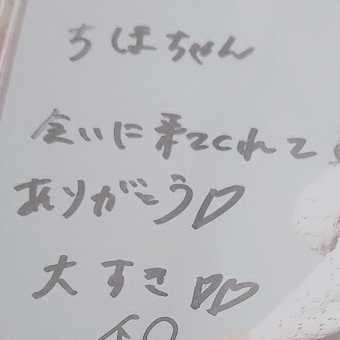 ちほちゃん
会いに来てくれて
ありがとう♡
大すき♡♡